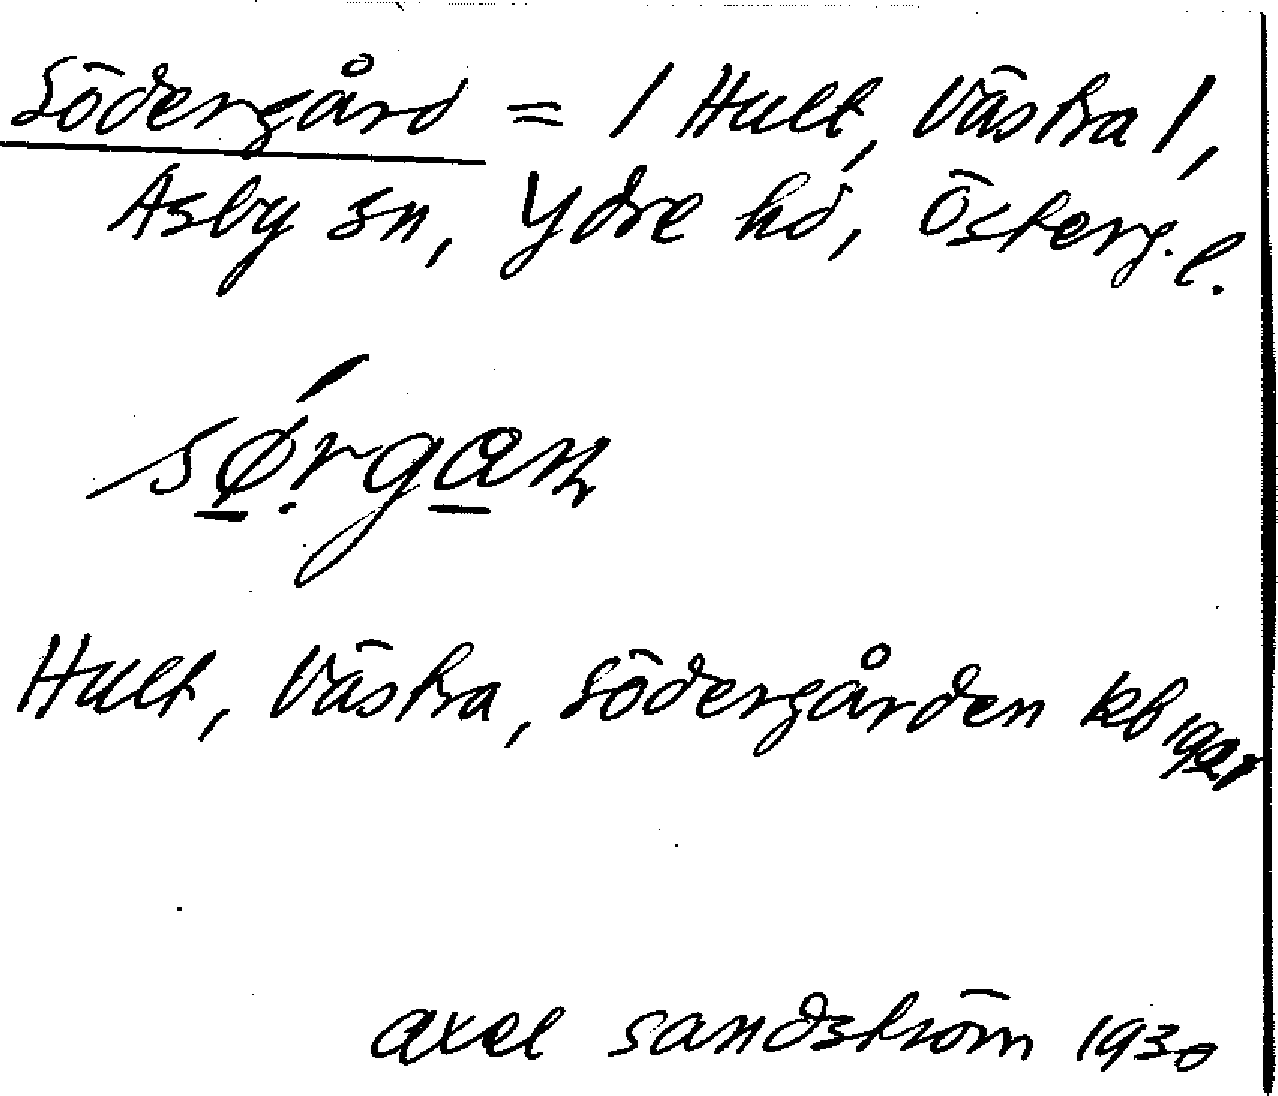 Södergård = / Hult, Västra /,
Asby sn, Ydre hd, Österg. l.
Hult, Västra, Södergården kb 1921
axel sandström 1930